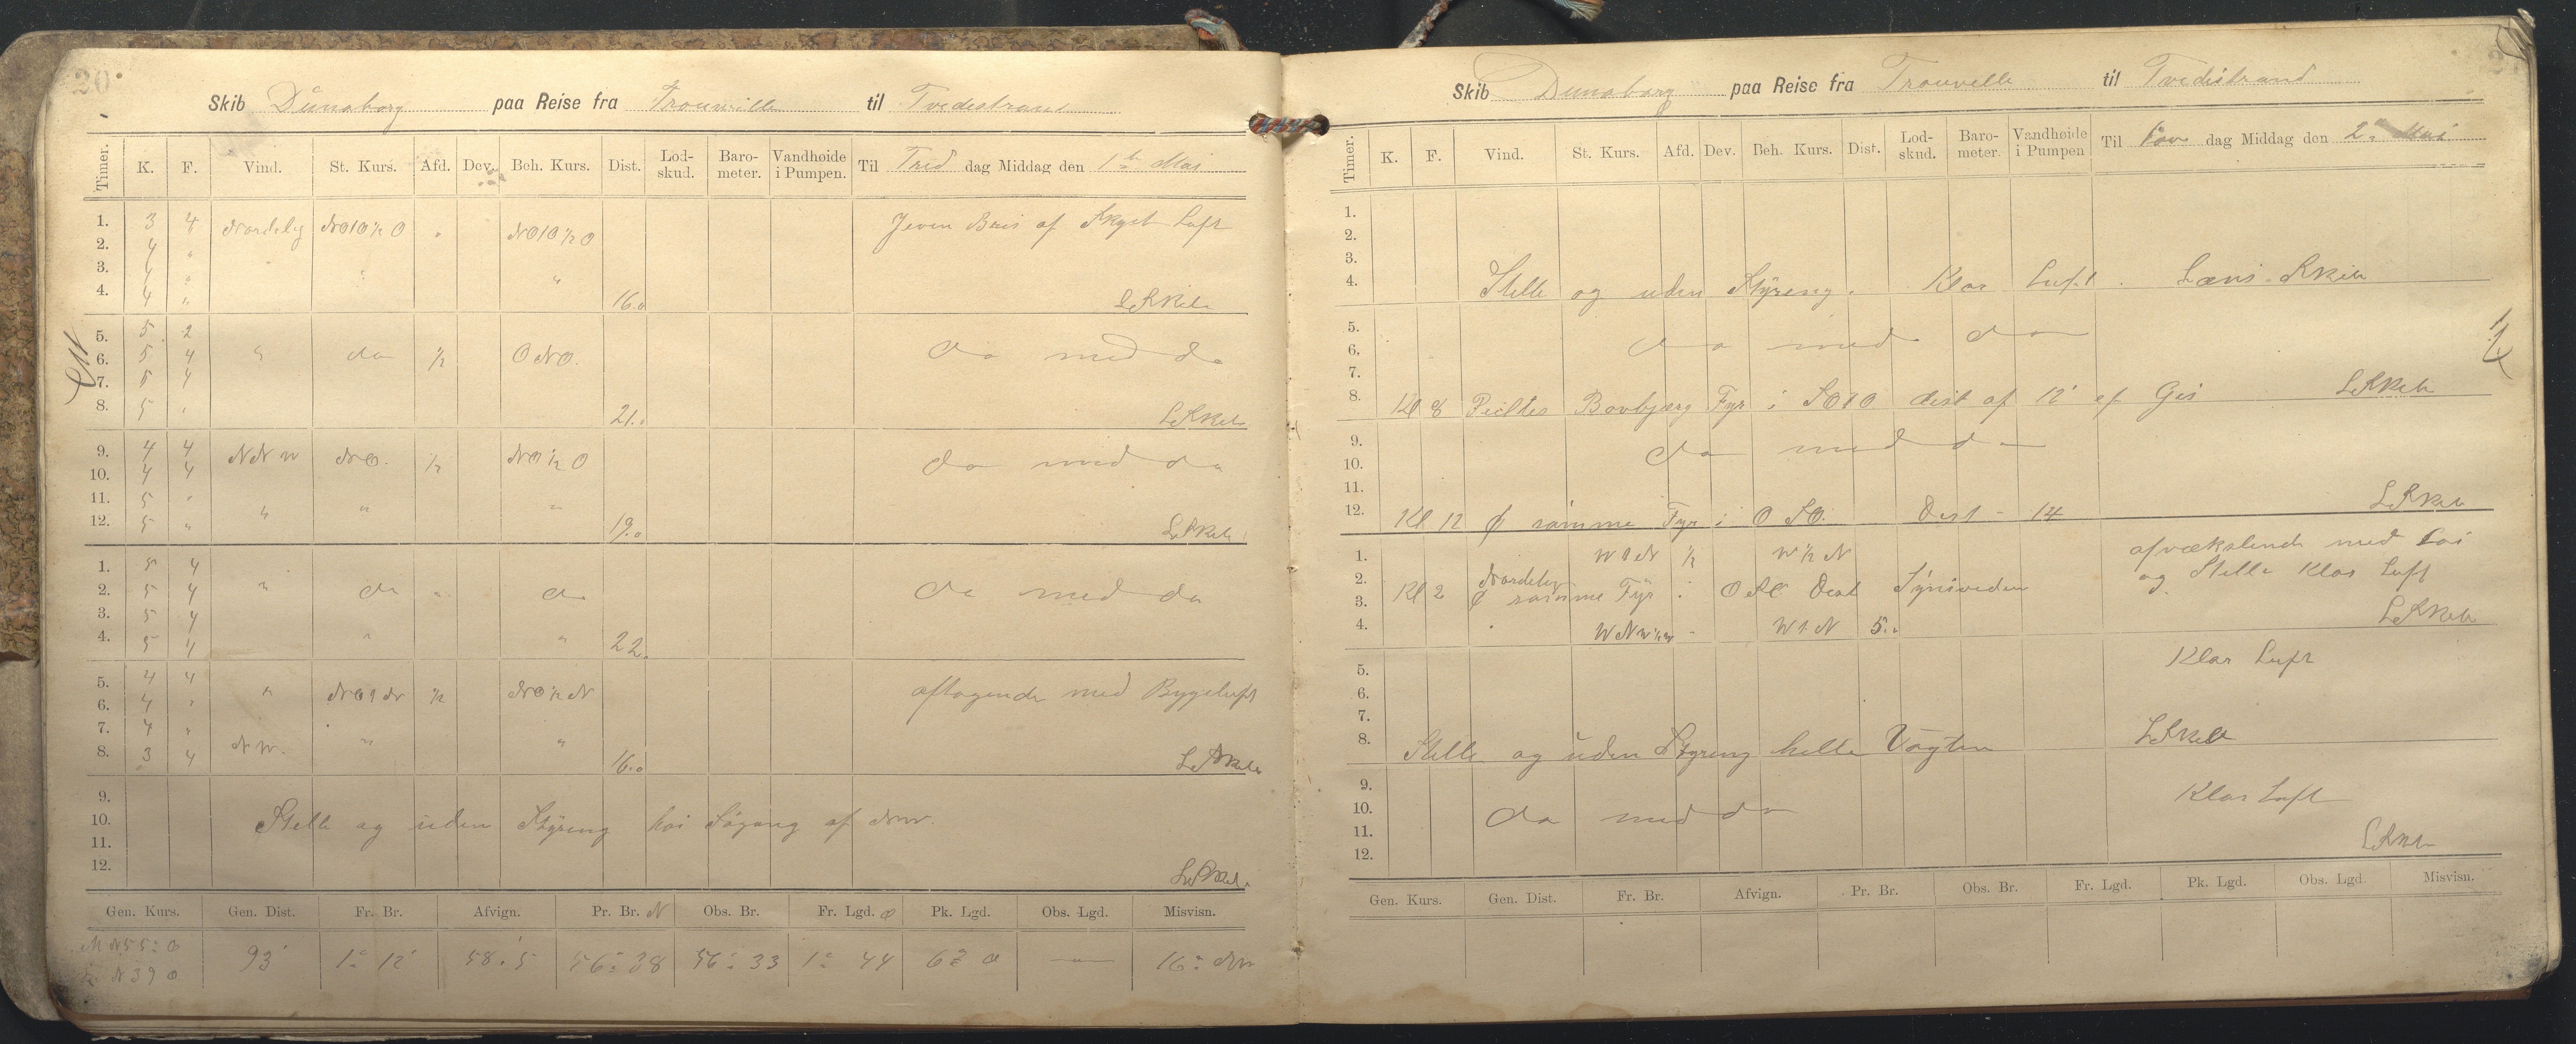 20
Skib Dünaborg paa Reise fra Trouville til Tvedestrand
Timer. K. F. Vind. St. Kurs. Afd. Dev. Beh. Kurs. Dist. Lod-skud. Baro-meter. Vandhøide i Pumpen. Til Tirs dag Middag den 1ste Mai
1. 3 4 Nordelig NO10½O " NO10½O Jeven Bris af Skyet Luft
2. 4 "
3. 4 " " "
4. 4 " 16.0 L Skib
5. 5 2
6. 5 4 " do ½ ONO. do med do
7. 5 4
8. 5 " 21.0 L Skib
9. 4 4 NNW NO. ½ NO½O do med do
10. 4 4
11. 5 " " " "
12. 5 " 19.0 L Skib
1. 5 4
2. 5 4 " do " do do med do
3. 5 4
4. 5 4 " " 22.
5. 4 4
6. 4 " " NO1N ½ NO½N aftagende med Bygeluft
7. 4 "
8. 3 4 NW. " " 16.0 L Skib
9.
10. Stelle og uden Styreng hoi Søgang af NW.
11.
12. L Skib.
Gen. Kurs. Gen. Dist. Fr. Br. Afvign. Pr. Br. N Obs. Br. Fr. Lgd. O Pk. Lgd. Obs. Lgd. Misvisn.
N55°O
N39O 93' 1° 12' 58.5 56° 38 56° 33 1° 44 O 16° NW
Skib Dunaborg paa Reise fra Trouville til Tvedestrand
Timer. K. F. Vind. St. Kurs. Afd. Dev. Beh. Kurs. Dist. Lod-skud. Baro-meter. Vandhøide i Pumpen Til dag Middag den 2den Mai
1.
2.
3.
4. Stelle og uden Styreng. Klar Luft. Læns Skib
5.
6. do med do
7.
8. Kl 8 Peiltes Bovbjærg Fyr i SO10 dist af 12' ef Gis L Skib
9.
10. do med do
11.
12. Kl 12 samme Fyr i OSO. Dist - 14 L Skib
1. W1N ½ W½N afvækslende med
2. Nordelig og Stelle Klar Luft
3. Kl 2 samme Fyr i OSO Dist Synsviden
4. " WNW½W - W1N 5.0 L Skib
5. Klar Luft
6.
7.
8. Stelle og uden Styreng helle Vagten L Skib
9. Klar Luft
10. do med do
11.
12. L Skib
Gen. Kurs. Gen. Dist. Fr. Br. Afvign. Pr. Br. Obs. Br. Fr. Lgd. Pk. Lgd. Obs. Lgd. Misvisn.